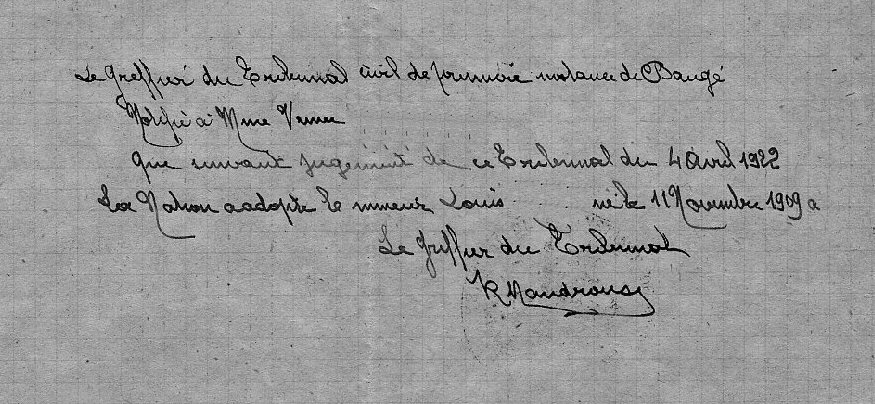 Le Greffier du Tribunal civil de première instance de Baugé
Notifie à Mme
Que suivant jugement de ce Tribunal du 4 Avril 1922
La Nation a adopté le mineur Louis né le 11 Novembre 1909 a
Le Greffier du Tribunal